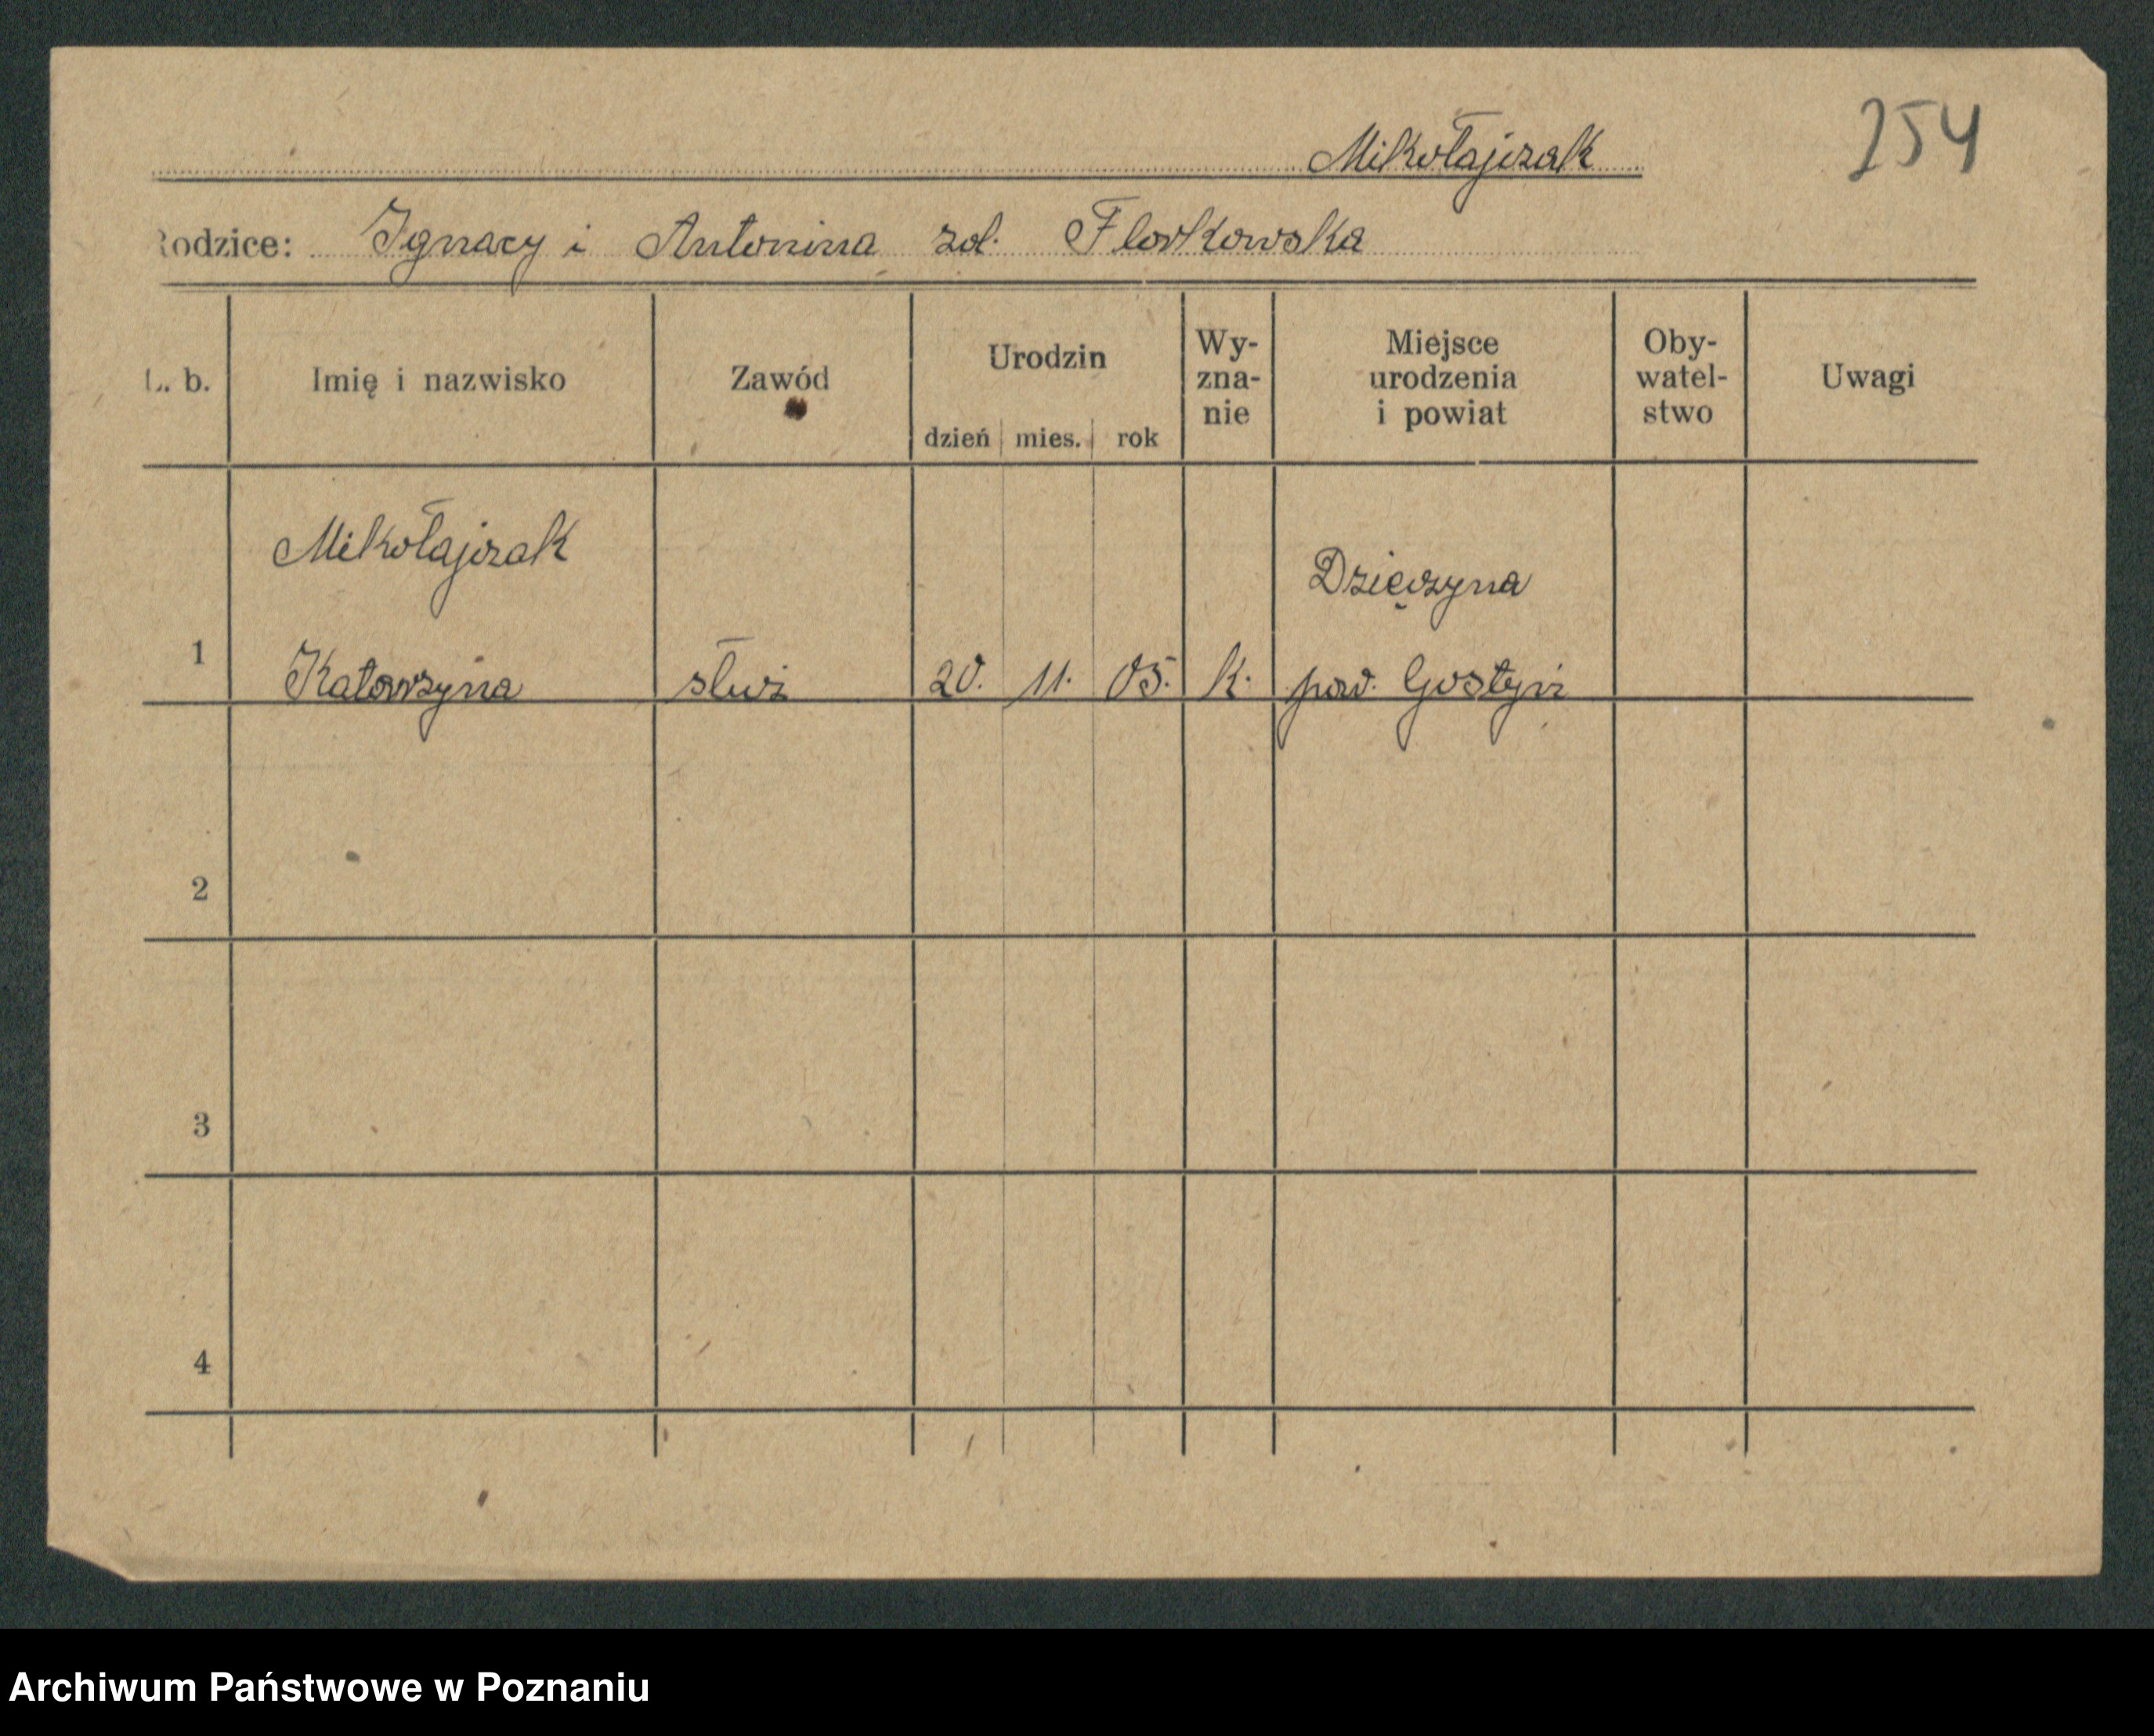 254
Mikołajczak
Rodzice: Ignacy i Antonina zd. Florkowska
L. b. Imię i nazwisko Zawód Urodzin dzień mies. rok Wy-zna-nie Miejsce urodzenia i powiat Oby-watel-stwo Uwagi
Mikołajczak Dzięczyna
1 Katarzyna służ 20. 11. 05. k. pow. Gostyń
2
3
4
Archiwum Państwowe w Poznaniu